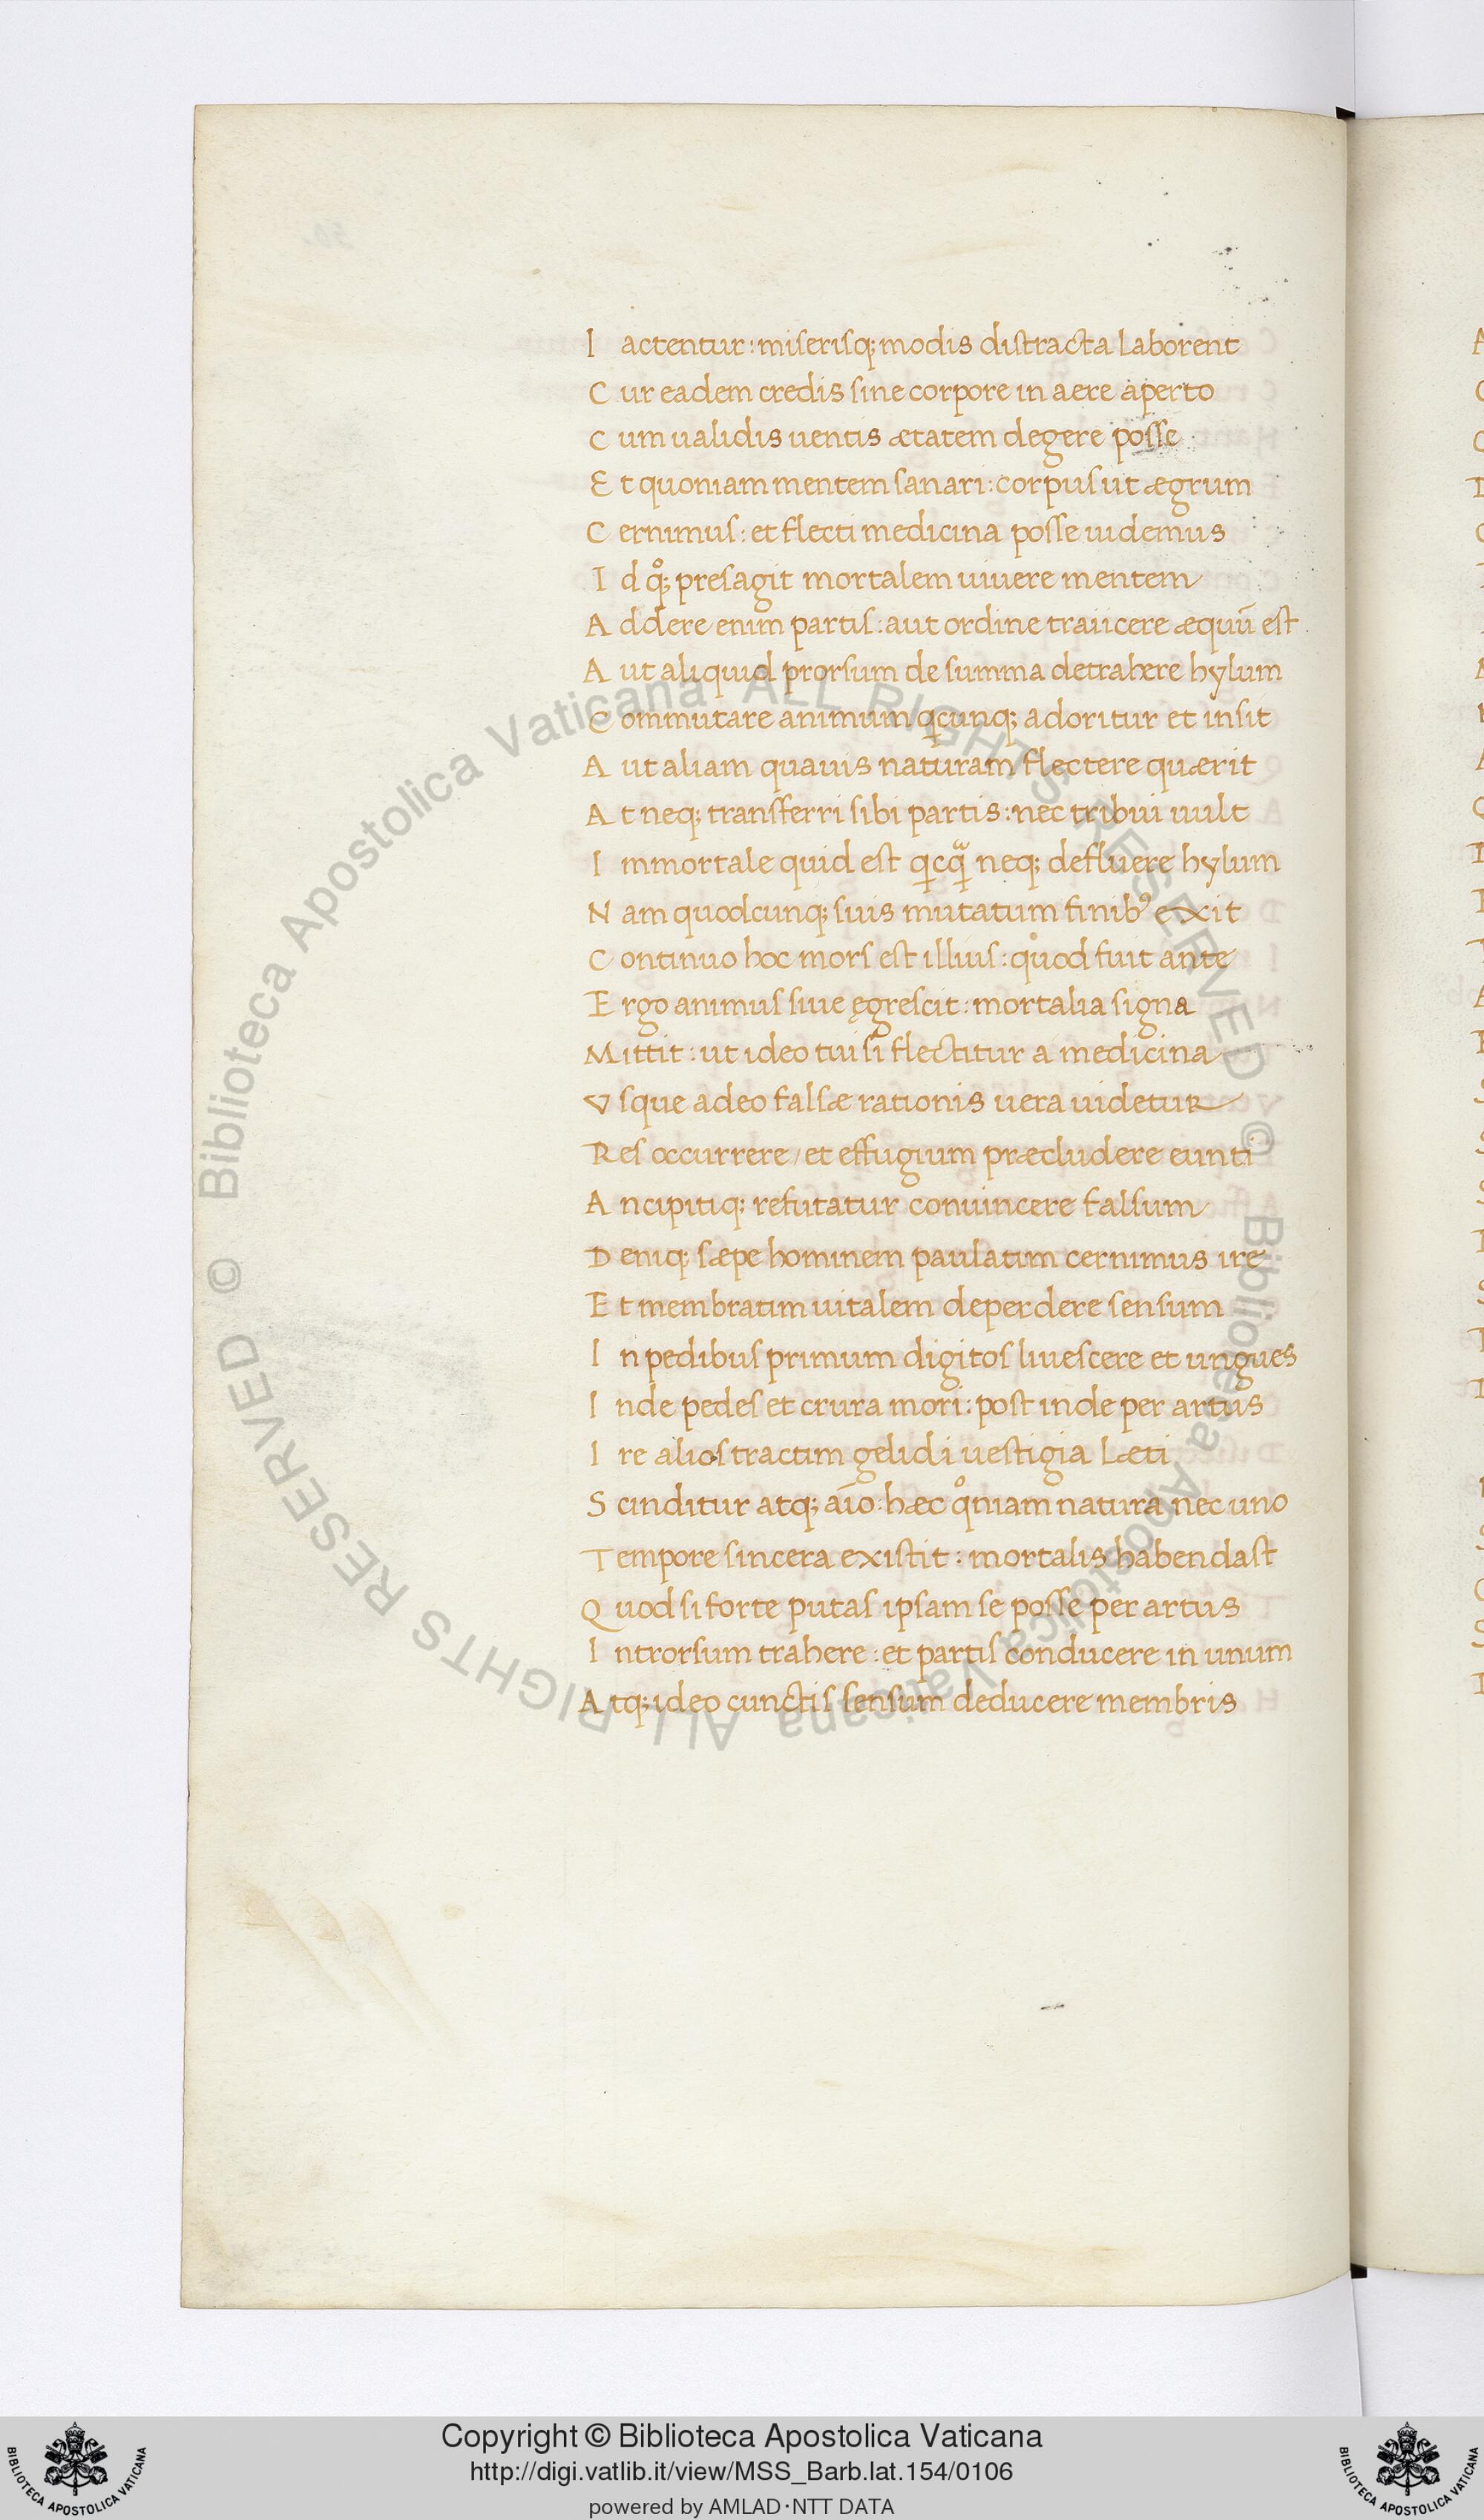 I actentur: miserisq; modis distracta laborent
C ur eadem credis sine corpore in aere aperto
C um ualidis uentis ætatem degere posse
E t quoniam mentem sanari: corpus ut ægrum
C ernimus: et flecti medicina posse uidemus
I d qͦ; presagit mortalem uiuere mentem
A ddere enim partis: aut ordine traiicere æquū est
A ut aliquid prorsum de summa detrahere hylum
C ommutare animum qcunq; adoritur et insit
A ut aliam quauis naturam flectere quærit
A t neq; transferri sibi partis: nec tribui uult
I mmortale quid est qcq neq; defluere hylum
N am quodcunq; suis mutatum finibꝰ exit
C ontinuo hoc mors est illius: quod fuit ante
E rgo animus siue ęgrescit: mortalia signa
Mittit: ut ideo tui si flectitur a medicina
V sque adeo falsæ rationis uera uidetur
R es occurrere / et effugium præcludere eunti
A ncipitiq; refutatur conuincere falsum
D eniq; sæpe hominem paulatim cernimus ire
E t membratim uitalem deperdere sensum
I n pedibus primum digitos liuescere et ungues
I nde pedes et crura mori: post inde per artus
I re alios tractim gelidi uestigia læti
S cinditur atq; aīo hæc qͦniam natura nec uno
T empore sincera existit: mortalis habendast
Q uod si forte putas ipsam se posse per artus
I ntrorsum trahere: et partis conducere in unum
A tq; ideo cunctis sensum deducere membris
© Biblioteca Apostolica Vaticana ALL RIGHTS RESERVED
© Biblioteca Apostolica Vaticana ALL RIGHTS RESERVED
Copyright © Biblioteca Apostolica Vaticana
http://digi.vatlib.it/view/MSS_Barb.lat.154/0106
powered by AMLAD·NTT DATA
BIBLIOTECA APOSTOLICA VATICANA
BIBLIOTECA APOSTOLICA VATICANA